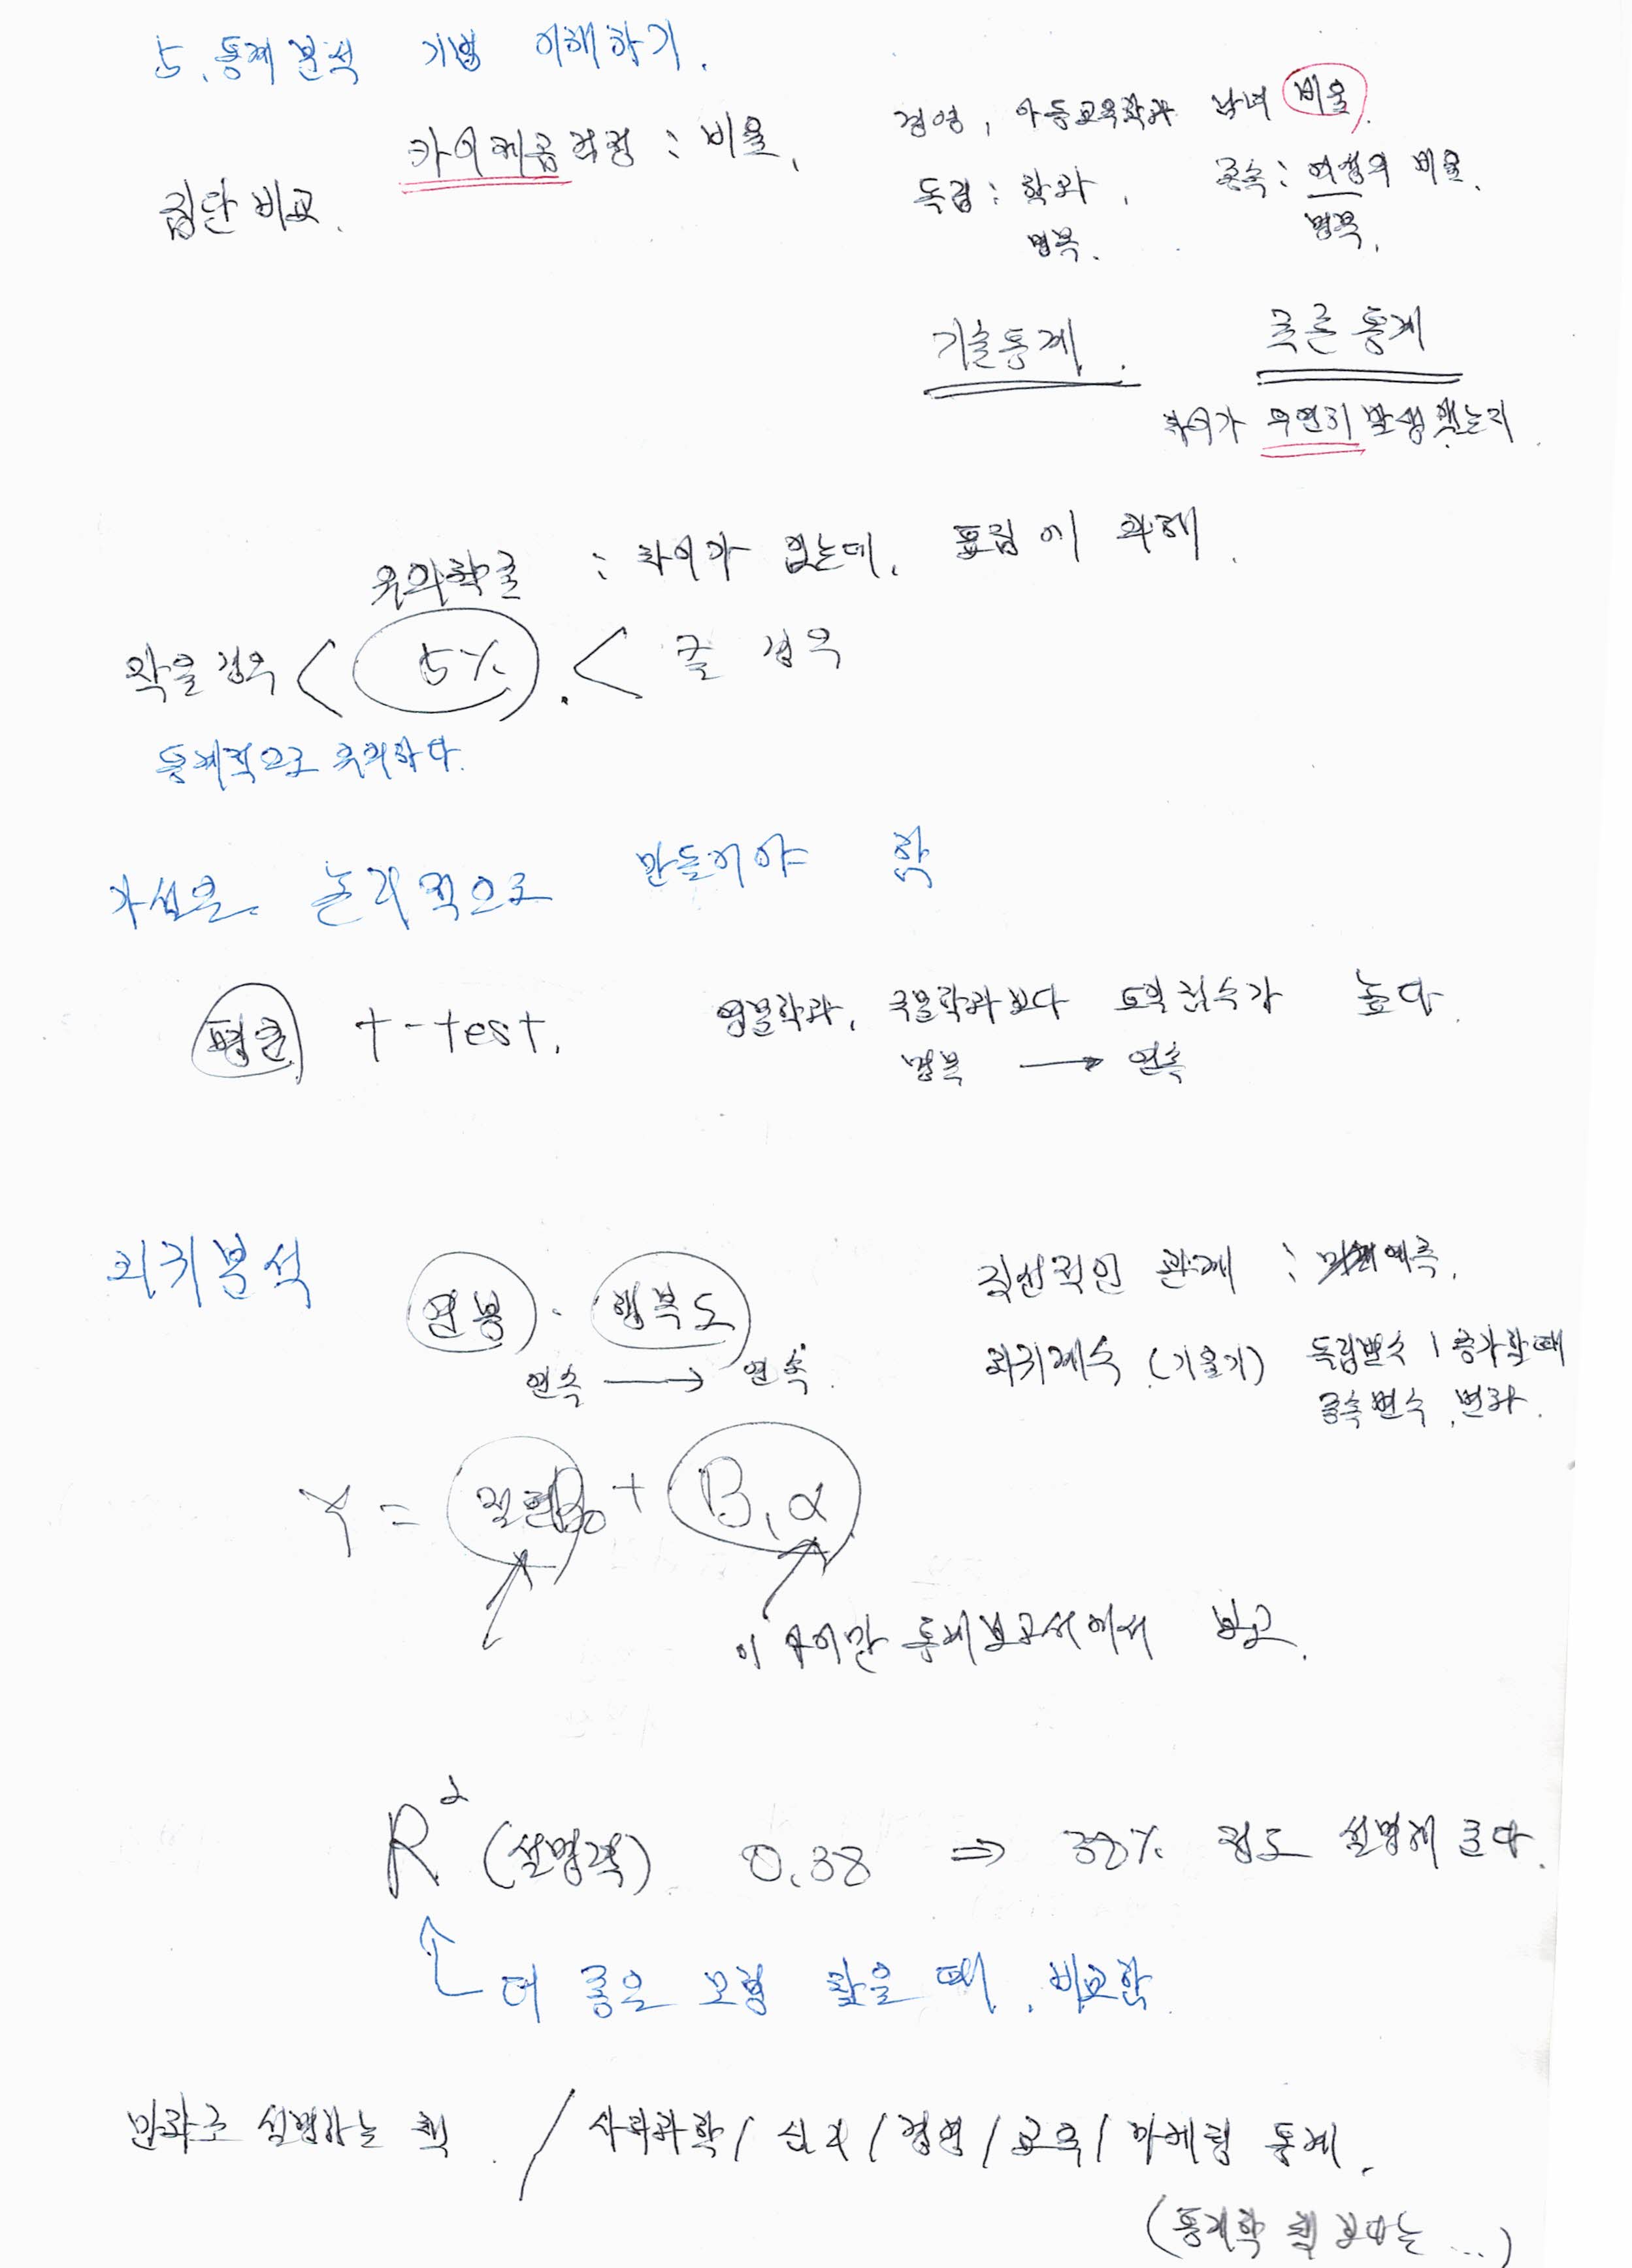 5. 통계분석 기법 이해하기.
카이제곱검정 : 비율.
집단비교.
경영, 아동교육학과 남녀 비율.
독립 : 학과, 종속 : 여성의 비율.
명목. 명목.
기술통계. 추론통계
차이가 우연히 발생했는지.
유의확률 : 차이가 없는데, 표집이
작을 경우 < 5% < 클 경우
통계적으로 유의하다.
가설은 논리적으로 만들어야 함
평균 t-test. 영문학과, 국문학과보다 토익점수가 높다.
명목 → 연속
회귀분석
연봉. 행복도
연속 → 연속.
직선적인 관계 : 예측.
회귀계수 (기울기) 독립변수 1 증가할때
종속변수 변화.
Y = 절편B₀ + B₁x
이 통계보고서에서 보고.
R² (설명력) 0.38 ⇒ 38% 정도 설명해 준다.
더 좋은 모형 찾을 때, 비교함.
만화로 설명하는 책. / 사회과학 / 심리 / 경영 / 교육 / 마케팅 통계.
(통계학 책 보다는 ...)